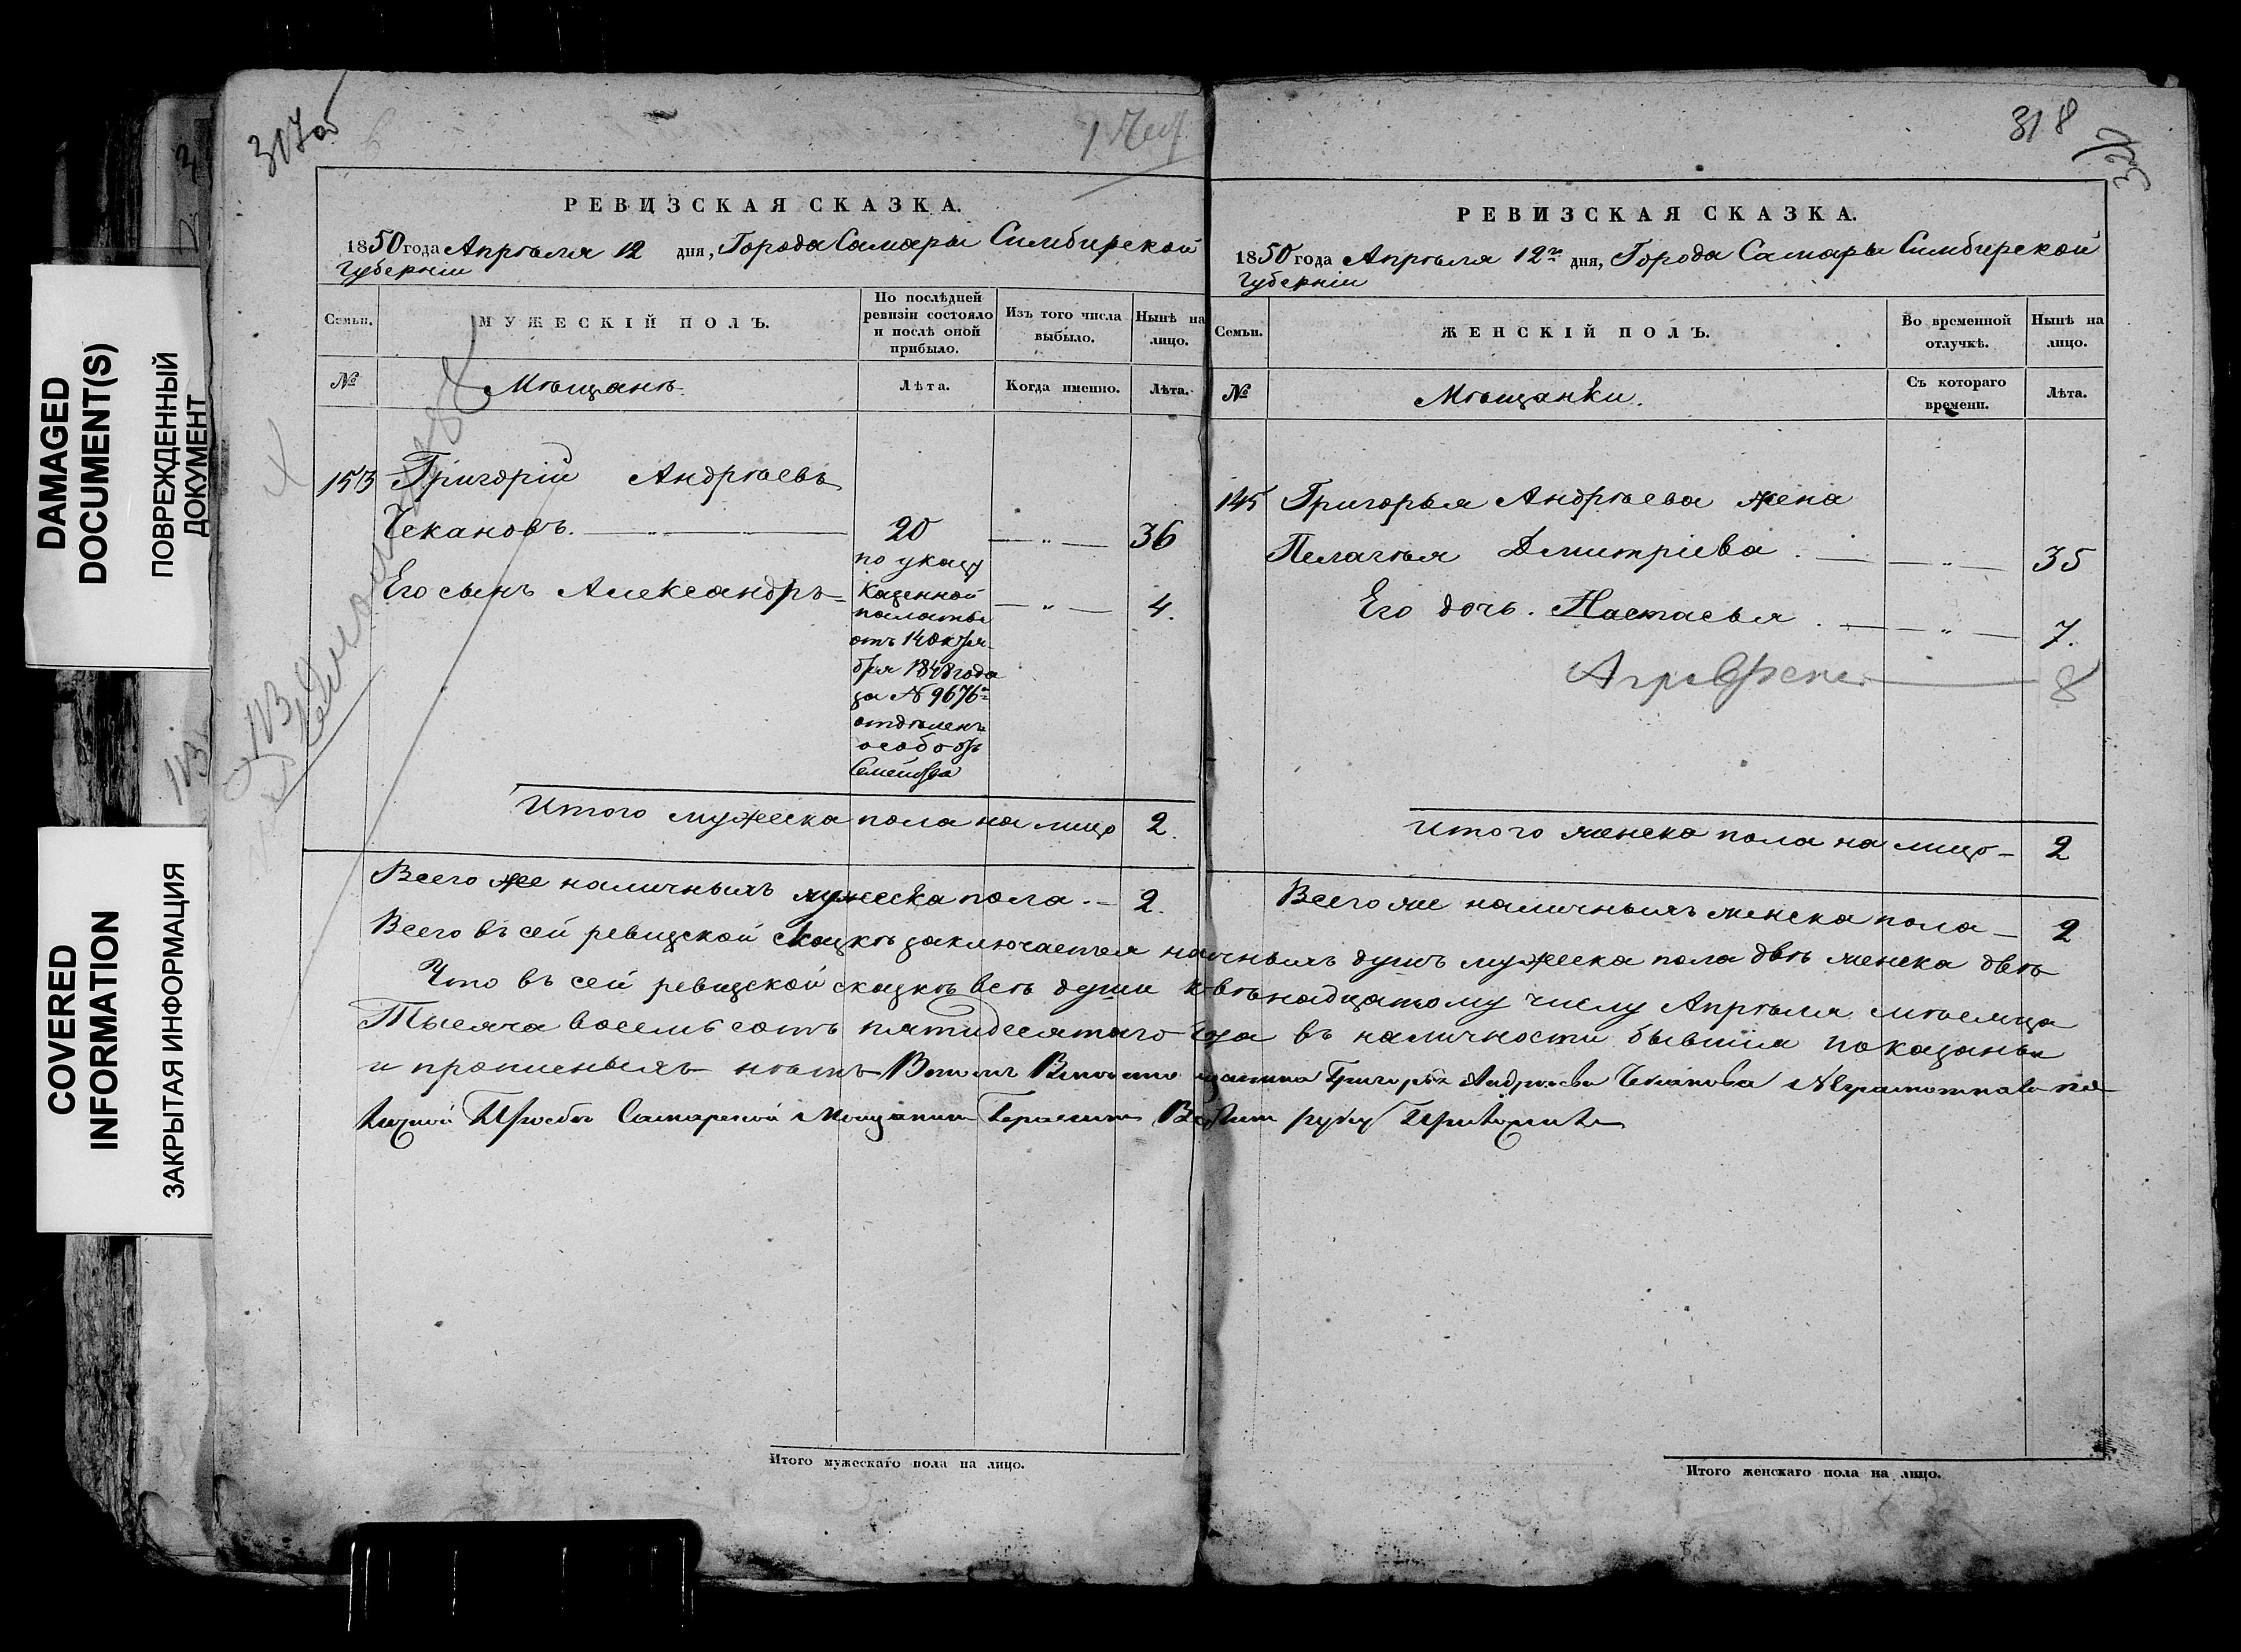 DAMAGED
DOCUMENT(S)
ПОВРЕЖДЕННЫЙ
ДОКУМЕНТ
COVERED
INFORMATION
ЗАКРЫТАЯ ИНФОРМАЦИЯ
317об
РЕВИЗСКАЯ СКАЗКА.
1850 года Апрѣля 12 дня, Города Самары Симбирской
Губерніи
Семьи.
МУЖЕСКІЙ ПОЛЪ.
По послѣдней
ревизіи состояло
и послѣ оной
прибыло.
Изъ того числа
выбыло.
Нынѣ на
лицо.
№
Мѣщанъ.
Лѣта.
Когда именно.
Лѣта.
Григорій Андрѣевъ
Чекановъ. 20 — „ — 36
по указу
Его сынъ Александръ — „ — 4.
Казенной
палаты
отъ 14 октя
бря 1848 года
за № 9676
отдѣленъ
особо отъ
Семейства
Итого мужеска пола на лицо 2.
Всего же наличныхъ мужеска пола. — 2.
318
РЕВИЗСКАЯ СКАЗКА.
1850 года Апрѣля 12го дня, Города Самары Симбирской
Губерніи
Семьи.
ЖЕНСКІЙ ПОЛЪ.
Во временной
отлучкѣ.
Нынѣ на
лицо.
№
Мѣщанки.
Съ котораго
времени.
Лѣта.
145 Григорья Андрѣева жена
Пелагѣя Дмитріева . — „ — 35
Его дочь. Настасья . — „ — 7.
Аграфена — 8
Итого женска пола на лицо — 2
Всего же наличныхъ женска пола — 2
Всего въ сей ревизской сказкѣ заключается наличныхъ душъ мужеска пола двѣ женска двѣ
Что въ сей ревизской сказкѣ всѣ души надцатому числу Апрѣля мѣсяца
Тысяча восемь сотъ пятидесятаго года въ наличности бывшія показаны
и прописныхъ нѣтъ Вотомъ Вместо мещанина Григорья Андреева Чеканова Неграмотнаго по
личной Прозбе Самарской Мещанин Герасим руку Приложил
Итого мужескаго пола на лицо.
Итого женскаго пола на лицо.